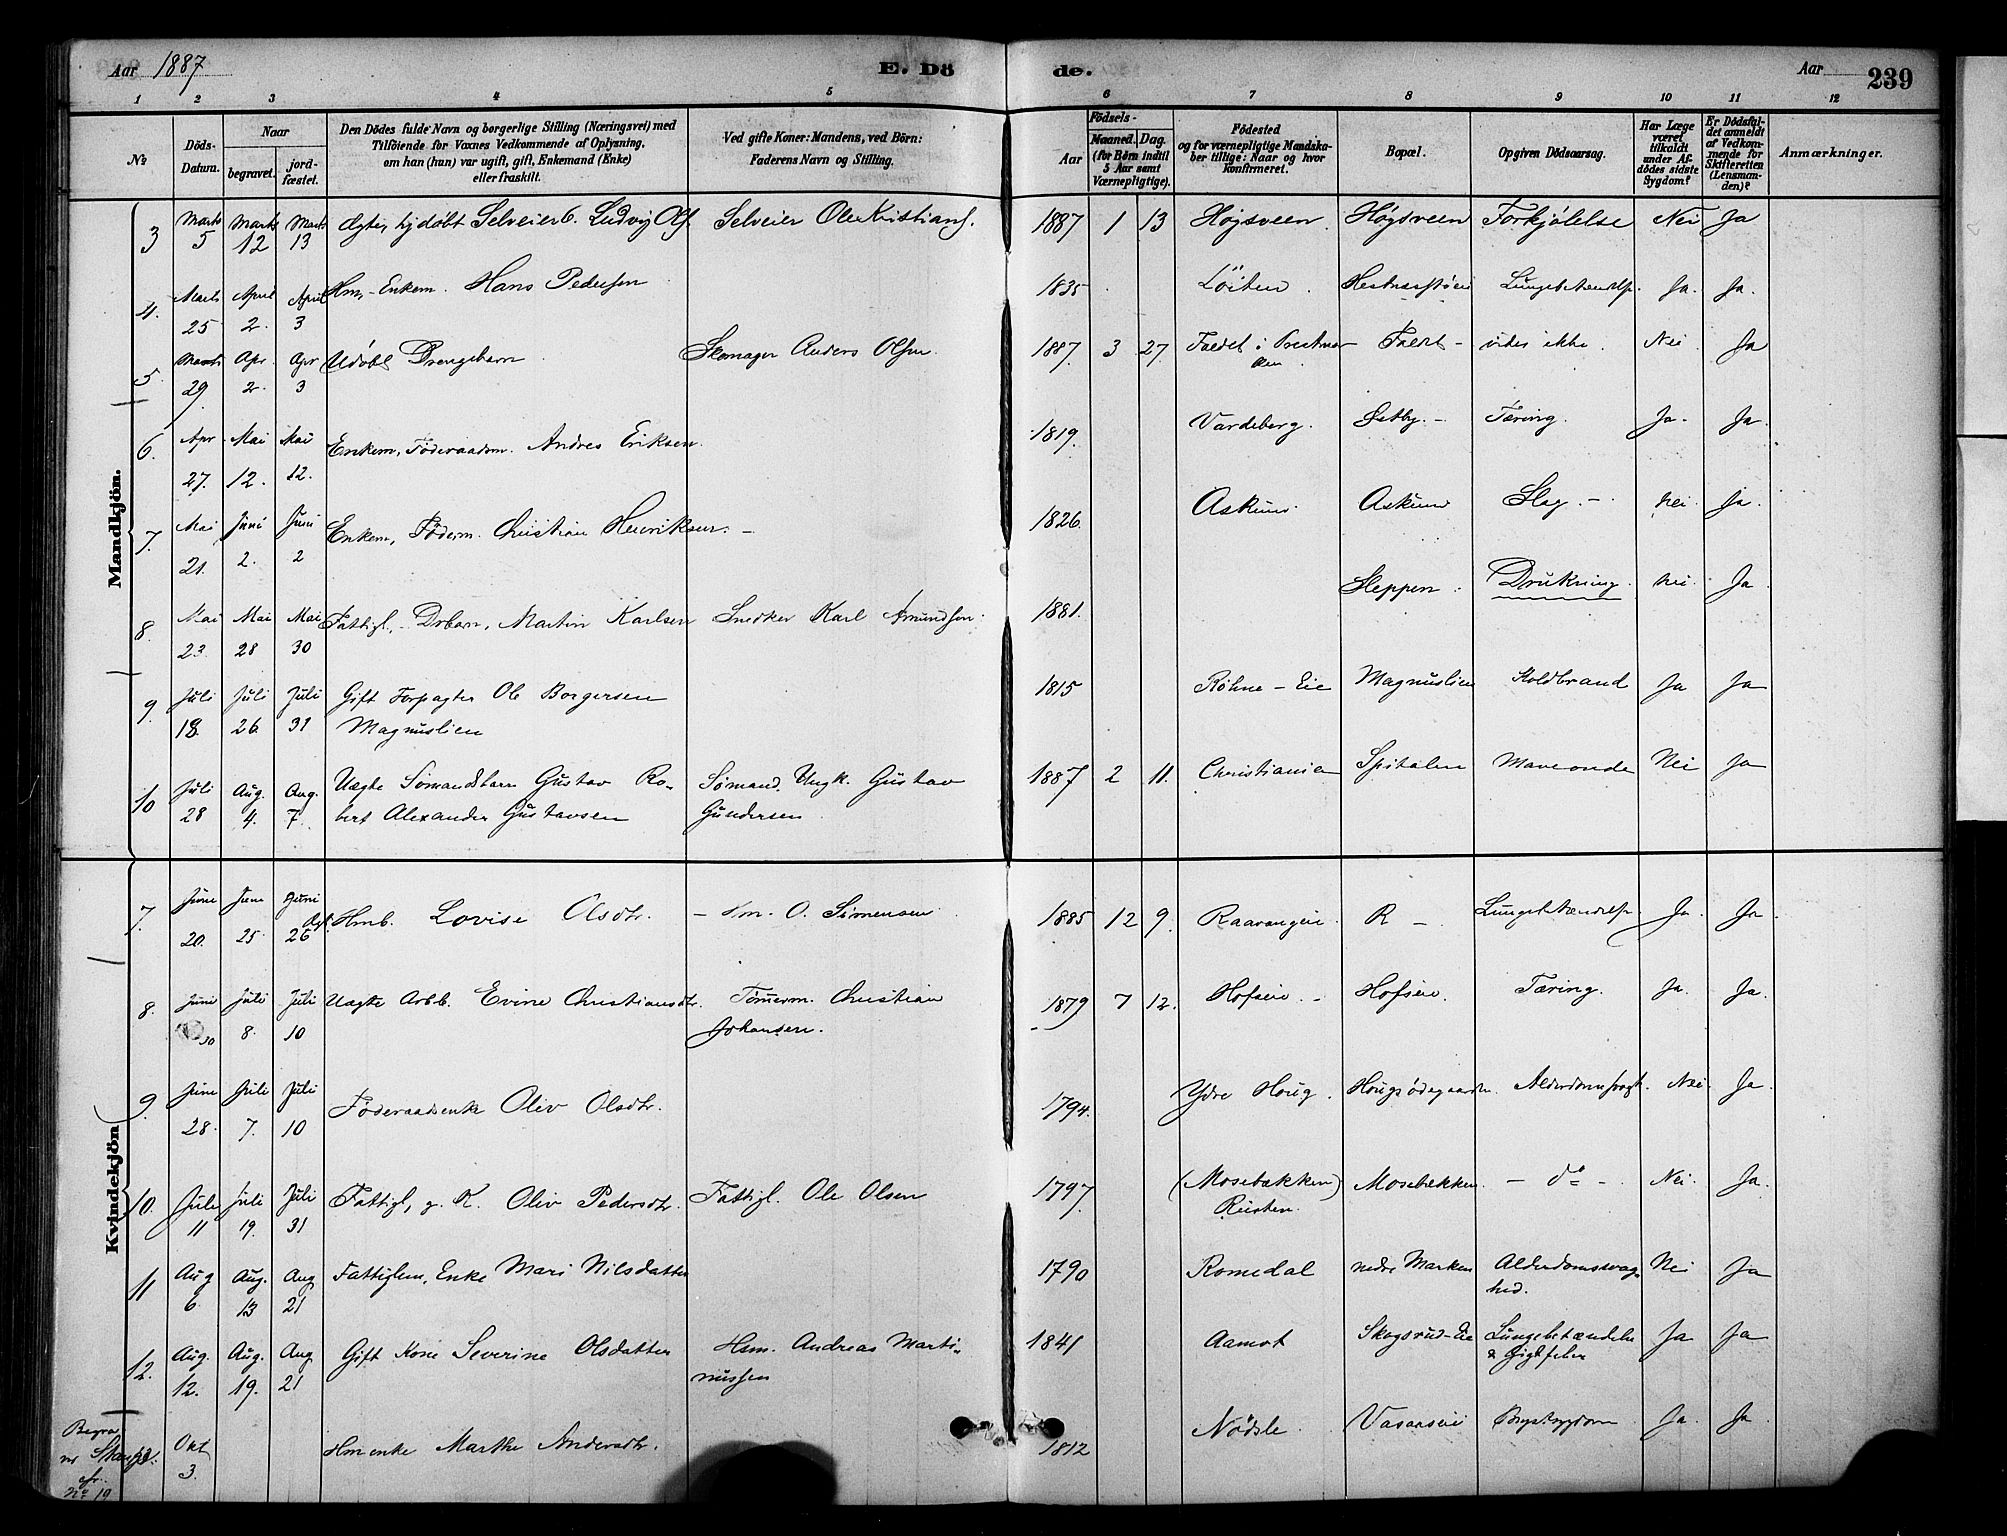 Aar 1887 E. Dö de. Aar 239
1 2 3 4 5 6 7 8 9 10 11 12
No Döds-Datum. Naar begravet. jordfæstet. Den Dödes fulde Navn og borgerlige Stilling (Næringsvei) med Tilföiende for Voxnes Vedkommende af Oplysning, om han (hun) var ugift, gift, Enkemand (Enke) eller fraskilt. Ved gifte Koner: Mandens, ved Börn: Faderens Navn og Stilling. Födsels- Aar Maaned. Dag. (for Börn indtil 5 Aar samt Værnepligtige). Födested og for værnepligtige Mandskaber tillige: Naar og hvor konfirmeret. Bopæl. Opgiven Dödsaarsag. Har Læge været tilkaldt under Afdödes sidste Sygdom? Er Dödsfaldet anmeldt af Vedkommende for Skifteretten (Lensmanden)? Anmærkninger.
Mandkjön.
3 Marts 5 Marts 12 Marts 13 Ægte, hjdøbt Selveierb. Ludvig Ols. Selveier Ole Kristians. 1887 1 13 Høgsveen. Høgsveen Forkjølelse Nei Ja
4. Marts 25 April 2. April 3 Hm.-Enkem. Hans Pedersen 1835 Löiten. Lungebetændelse. Ja. Ja.
5. Marts 29. Apr. 2. Apr 3 Udøbt Drengebarn Skomager Anders Olsen. 1887 3 27. Faldet i Faldt - vides ikke. Nei. Ja
6. Apr 27. Mai 12. Mai 12. Enkem, Föderaadsm. Andres Eriksen. 1819. Vardeberg. Østby. - Tæring. Ja. Ja.
7. Mai 21. Juni 2. Juni 2 Enkem, Föderm. Christian Henriksen. - 1826. Askum. Askum Slag. - Nei. Ja.
8. Mai 23 Mai 28 Mai 30 Fattigl. - Drbarn, Martin Karlsen Snedker Karl Amundsen. 1881. Sleppen. Drukning. Nei. Ja
9. Juli 18. Juli 26. Juli 31 Gift Forpagter Ole Borgersen
Magnuslien 1815 Röhne - Eie Magnuslien Koldbrand Ja Ja
10 Juli 28 Aug. 4. Aug. 7. Uægte Sømandsbarn Gustav Ro-
bert Alexander Gustavsen Sømand. Ungk. Gustav
Gundersen 1887 2 11. Christiania Spitalen Maveonde Nei Ja
Kvindekjön
7. Juni 20. Juni 25. Juni 26 Hmb. Lovise Olsdtr. - Hm. O. Simensen 1885 12 9. R - Lungebetændelse. Ja. Ja.
8. Juni 30 Juli 8. Juli 10 Uægte Arbb. Evine Christiansdtr. Tømmerm. Christian
Johansen. 1879 7 12. Hofseie. - Hofseie. Tæring. Ja. Ja.
9. Juni 28. Juli 7. Juli 10 Föderaadsenke Oliv Olsdtr. 1794. Ydre Houg. Hougsødegaarden Alderdomssvagh. Nei. Ja.
10. Juli 11 Juli 19. Juli 31 Fattigl, g. K. Oliv Pedersdtr. Fattigl. Ole Olsen 1797. (Mosebækken)
Reisten. Mosebækken. - do - Nei. Ja.
11 Aug 6. Aug. 13 Aug 21 Fattiglem, Enke Mari Nilsdatter 1790 Romedal nedre Marken Alderdomssvag-
hed. Nei Ja
12. Aug. 12. Aug. 19. Aug 21 Gift Kone Severine Olsdatter Hsm. Andreas Marti-
nussen 1841 Aamot Skogsrud-Eie Lungebetændelse
& Gigtfeber Ja Ja
13. Okt 3. Hmenke Marthe Andersdtr. 1812 Nødsle. Brystsygdom Ja. Ja.
No 19